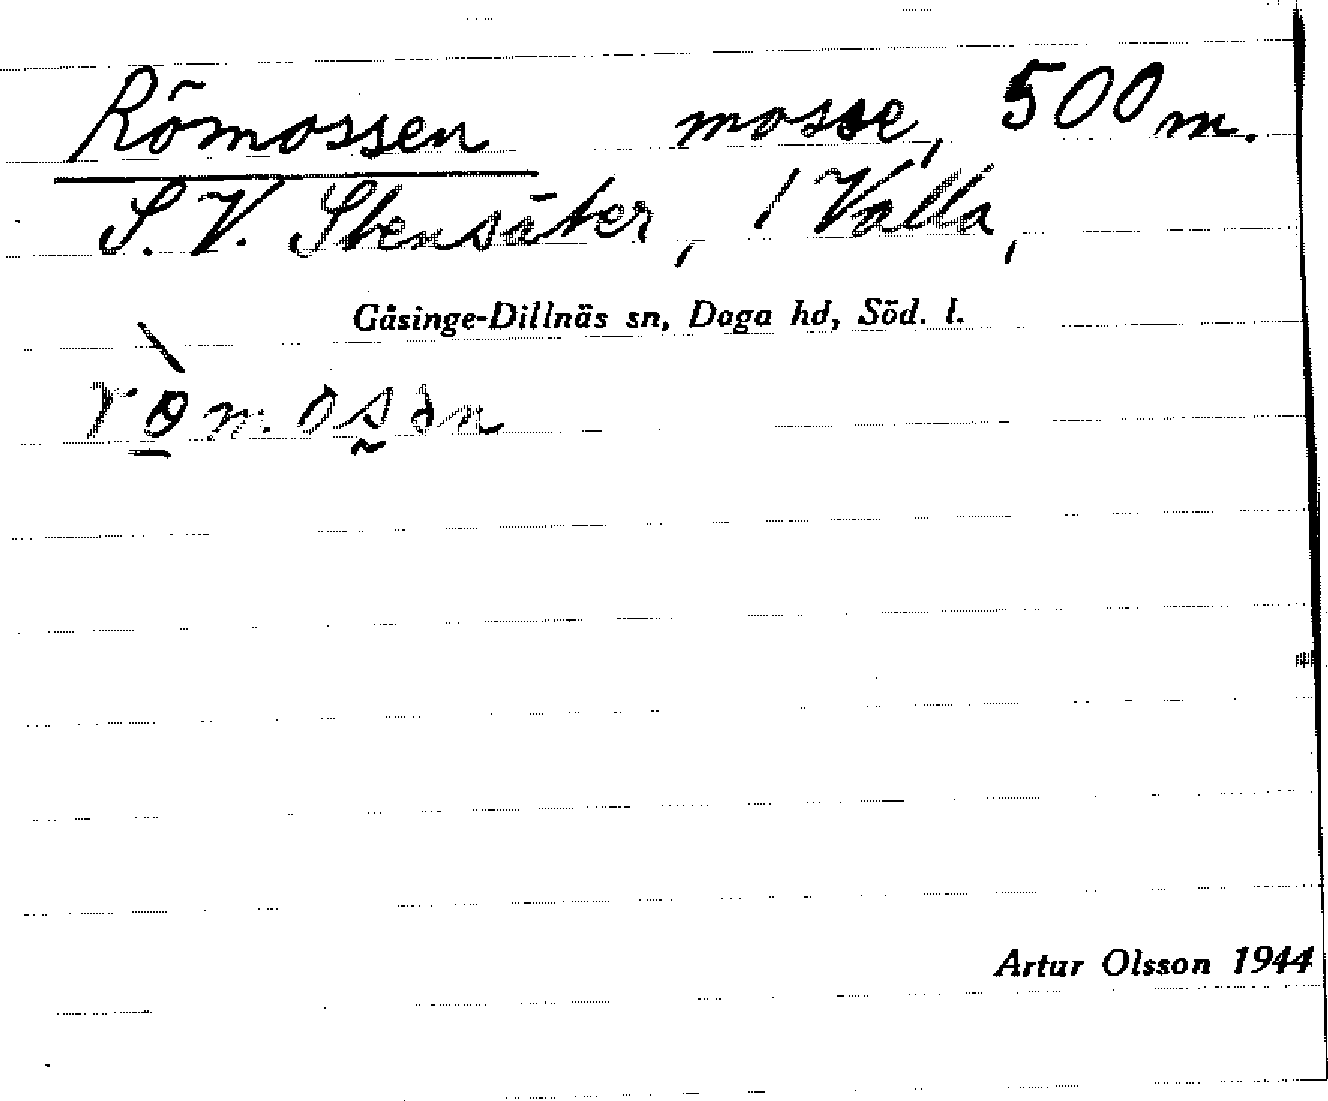 Römossen mosse, 500 m.
S.V. Stensäter, 1 Valla,
Gåsinge-Dillnäs sn, Daga hd, Söd. l.
Artur Olsson 1944